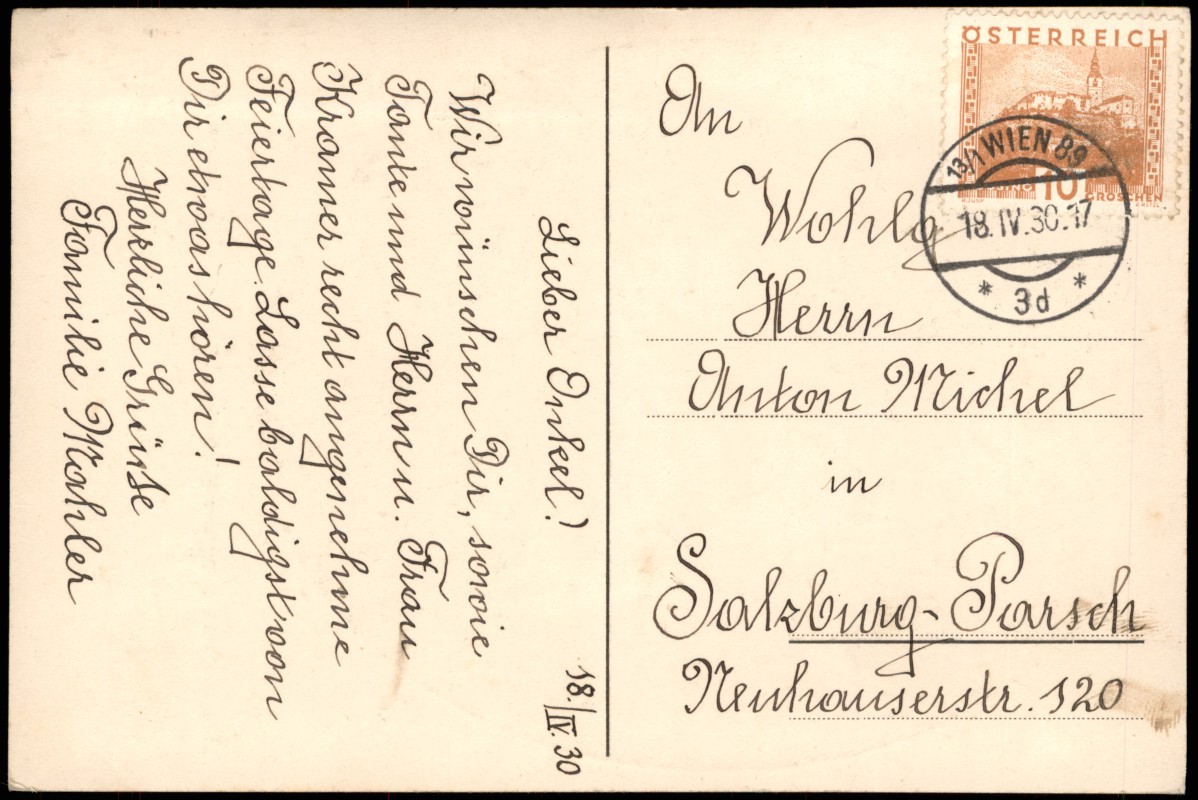 18./IV. 30
Lieber Onkel!
Wir wünschen Dir, sowie
Tante und Herrn u. Frau
Kramer recht angenehme
Feiertage. Lasse baldigst von
Dir etwas hören!
Herzliche Grüsse
Familie Mahler
ÖSTERREICH
10
GROSCHEN
13/1 WIEN 89
18.IV.30.17
* 3d *
An
Wohlg
Herrn
Anton Michel
in
Salzburg-Parsch
Neuhauserstr. 120